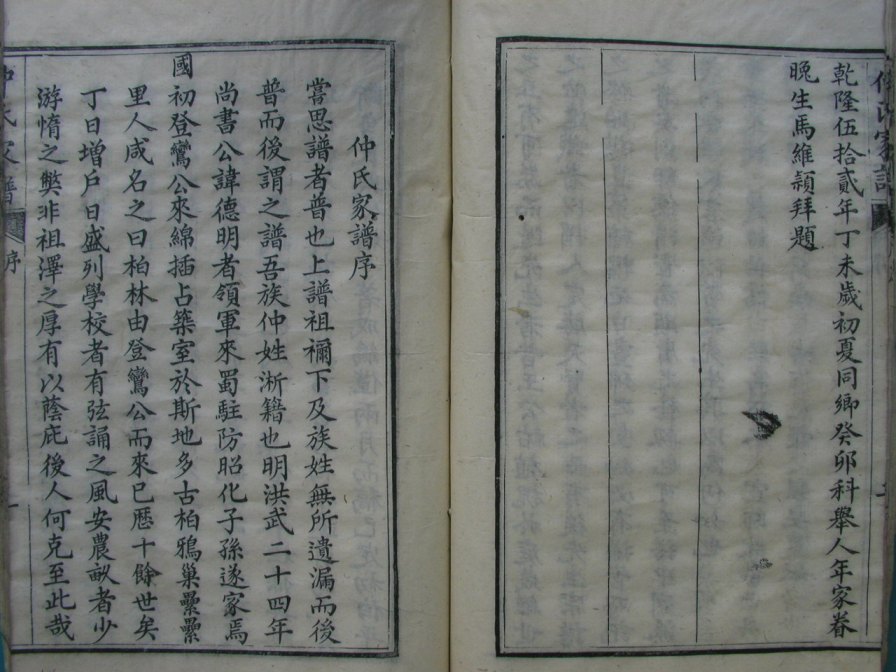 乾隆伍拾貳年丁未歲初夏同鄉癸卯科舉人年家眷
晚生馬維頴拜題
仲氏家譜序
嘗思譜者普也上譜祖禰下及族姓無所遺漏而後
普而後謂之譜吾族仲姓淅籍也明洪武二十四年
尚書公諱德明者領軍來蜀駐防昭化子孫遂家焉
國初登鸞公來綿插占築室於斯地多古柏鴉巢纍纍
里人咸名之曰柏林由登鸞公而來已歷十餘世矣
丁日增戶日盛列學校者有弦誦之風安農畝者少
游惰之獘非祖澤之厚有以蔭庇後人何克至此哉
仲氏家譜
序